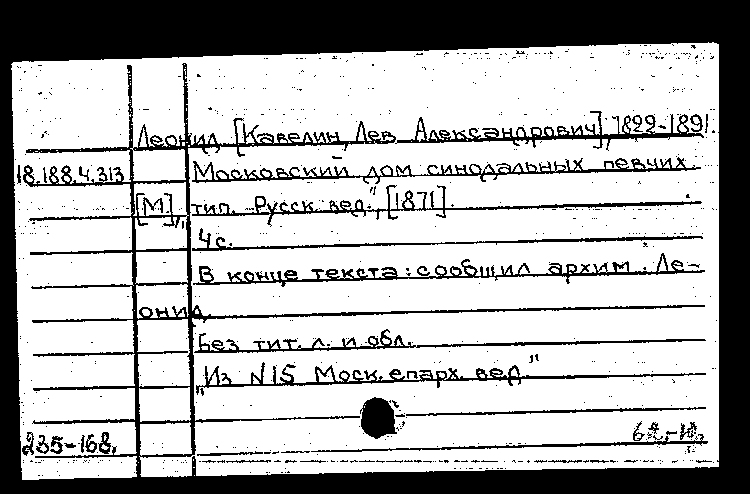 Леонид, [Кавелин, Лев Александрович], 1822-1891.
18.188.4.313 Московский дом синодальных певчих.
[М], тип. "Русск. вед.", [1871].
4 с.
В конце текста: сообщил архим. Ле-
онид.
Без тит. л. и обл.
"Из N15 Моск. епарх. вед."
235-168.